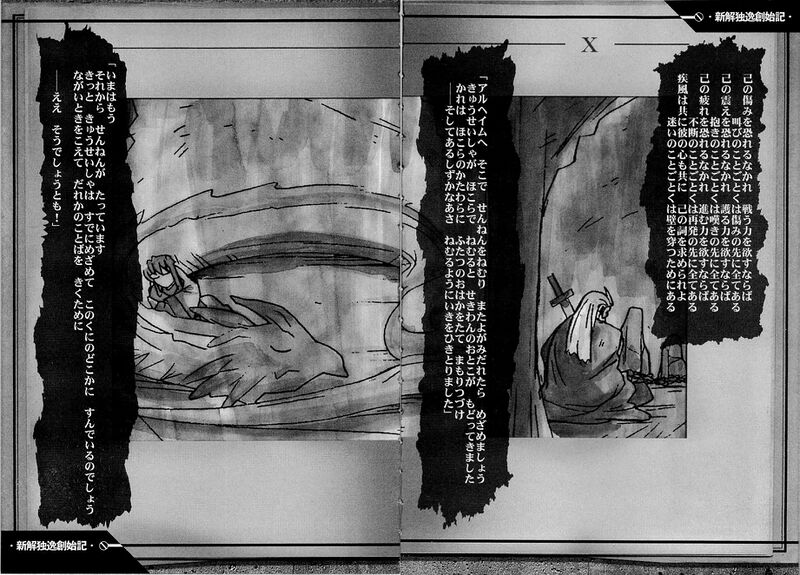 ・新解独逸創始記・
X
己の傷みを恐れるなかれ 戦う力を欲すならば
叫びのことごとくは傷みの先に全てある
己の震えを恐れるなかれ 護る力を欲すならば
抱きのことごとくは嘆きの先に全てある
己の疲れを恐れるなかれ 進む力を欲すならば
不断のことごとくは再発の先に全てある
疾風は共に彼の心も共に 己の詞を求められよ
迷いのことごとくは壁を穿つためにある
「アルヘイムへ そこで せんねんをねむり またよがみだれたら めざめましょう
きゅうせいしゃが ほこらで ねむると せきわんのおとこが もどってきました
かれは ほこらのかたわらに ふたつのおはかをたて まもりつづけ
――そしてあるしずかなあさ ねむるようにいきをひきとりました」
「いまはもう
それから せんねんが たっています
きっと きゅうせいしゃは すでにめざめて このくにのどこかに すんでいるのでしょう
ながいときをこえて だれかのことばを きくために
――ええ そうでしょうとも！」
・新解独逸創始記・